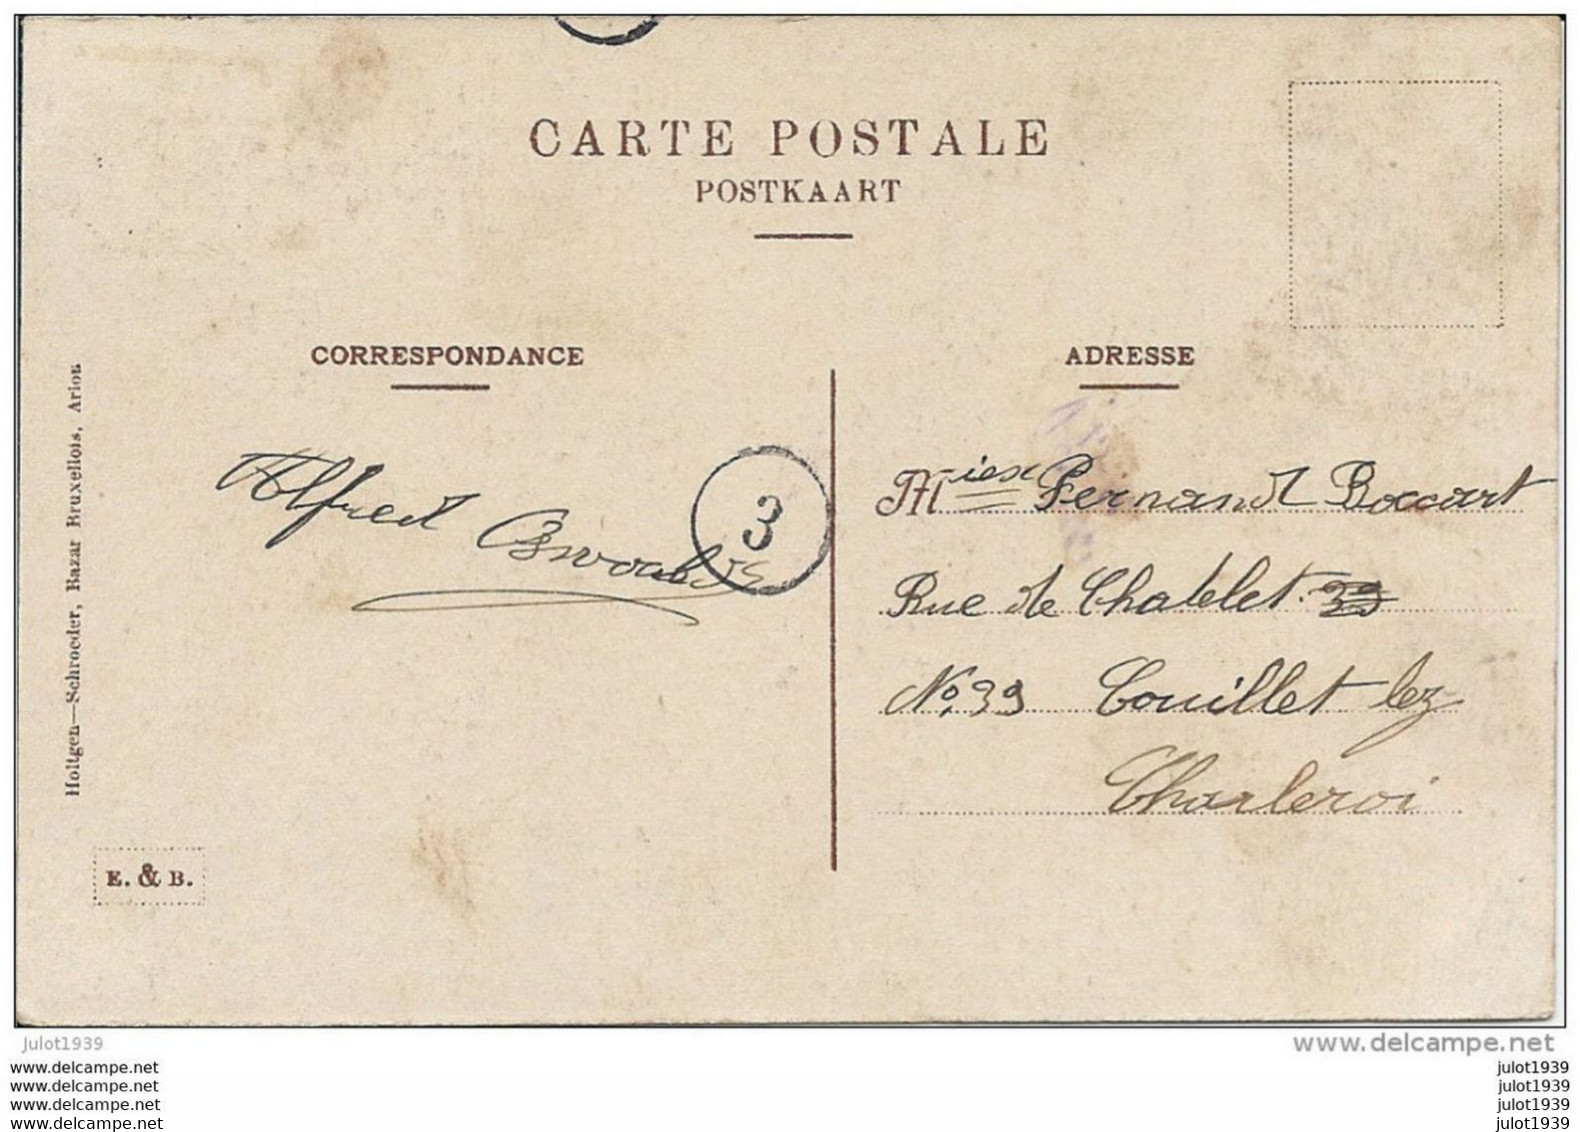 CARTE POSTALE
POSTKAART
CORRESPONDANCE
ADRESSE
Holtgen—Schroeder, Bazar Bruxellois, Arlon
Alfred
3
Fernand Boccart
Rue de Chatelet 39
No. 39 Couillet lez
Charleroi
E. & B.
julot1939
www.delcampe.net
www.delcampe.net
www.delcampe.net
www.delcampe.net
www.delcampe.net
julot1939
julot1939
julot1939
julot1939